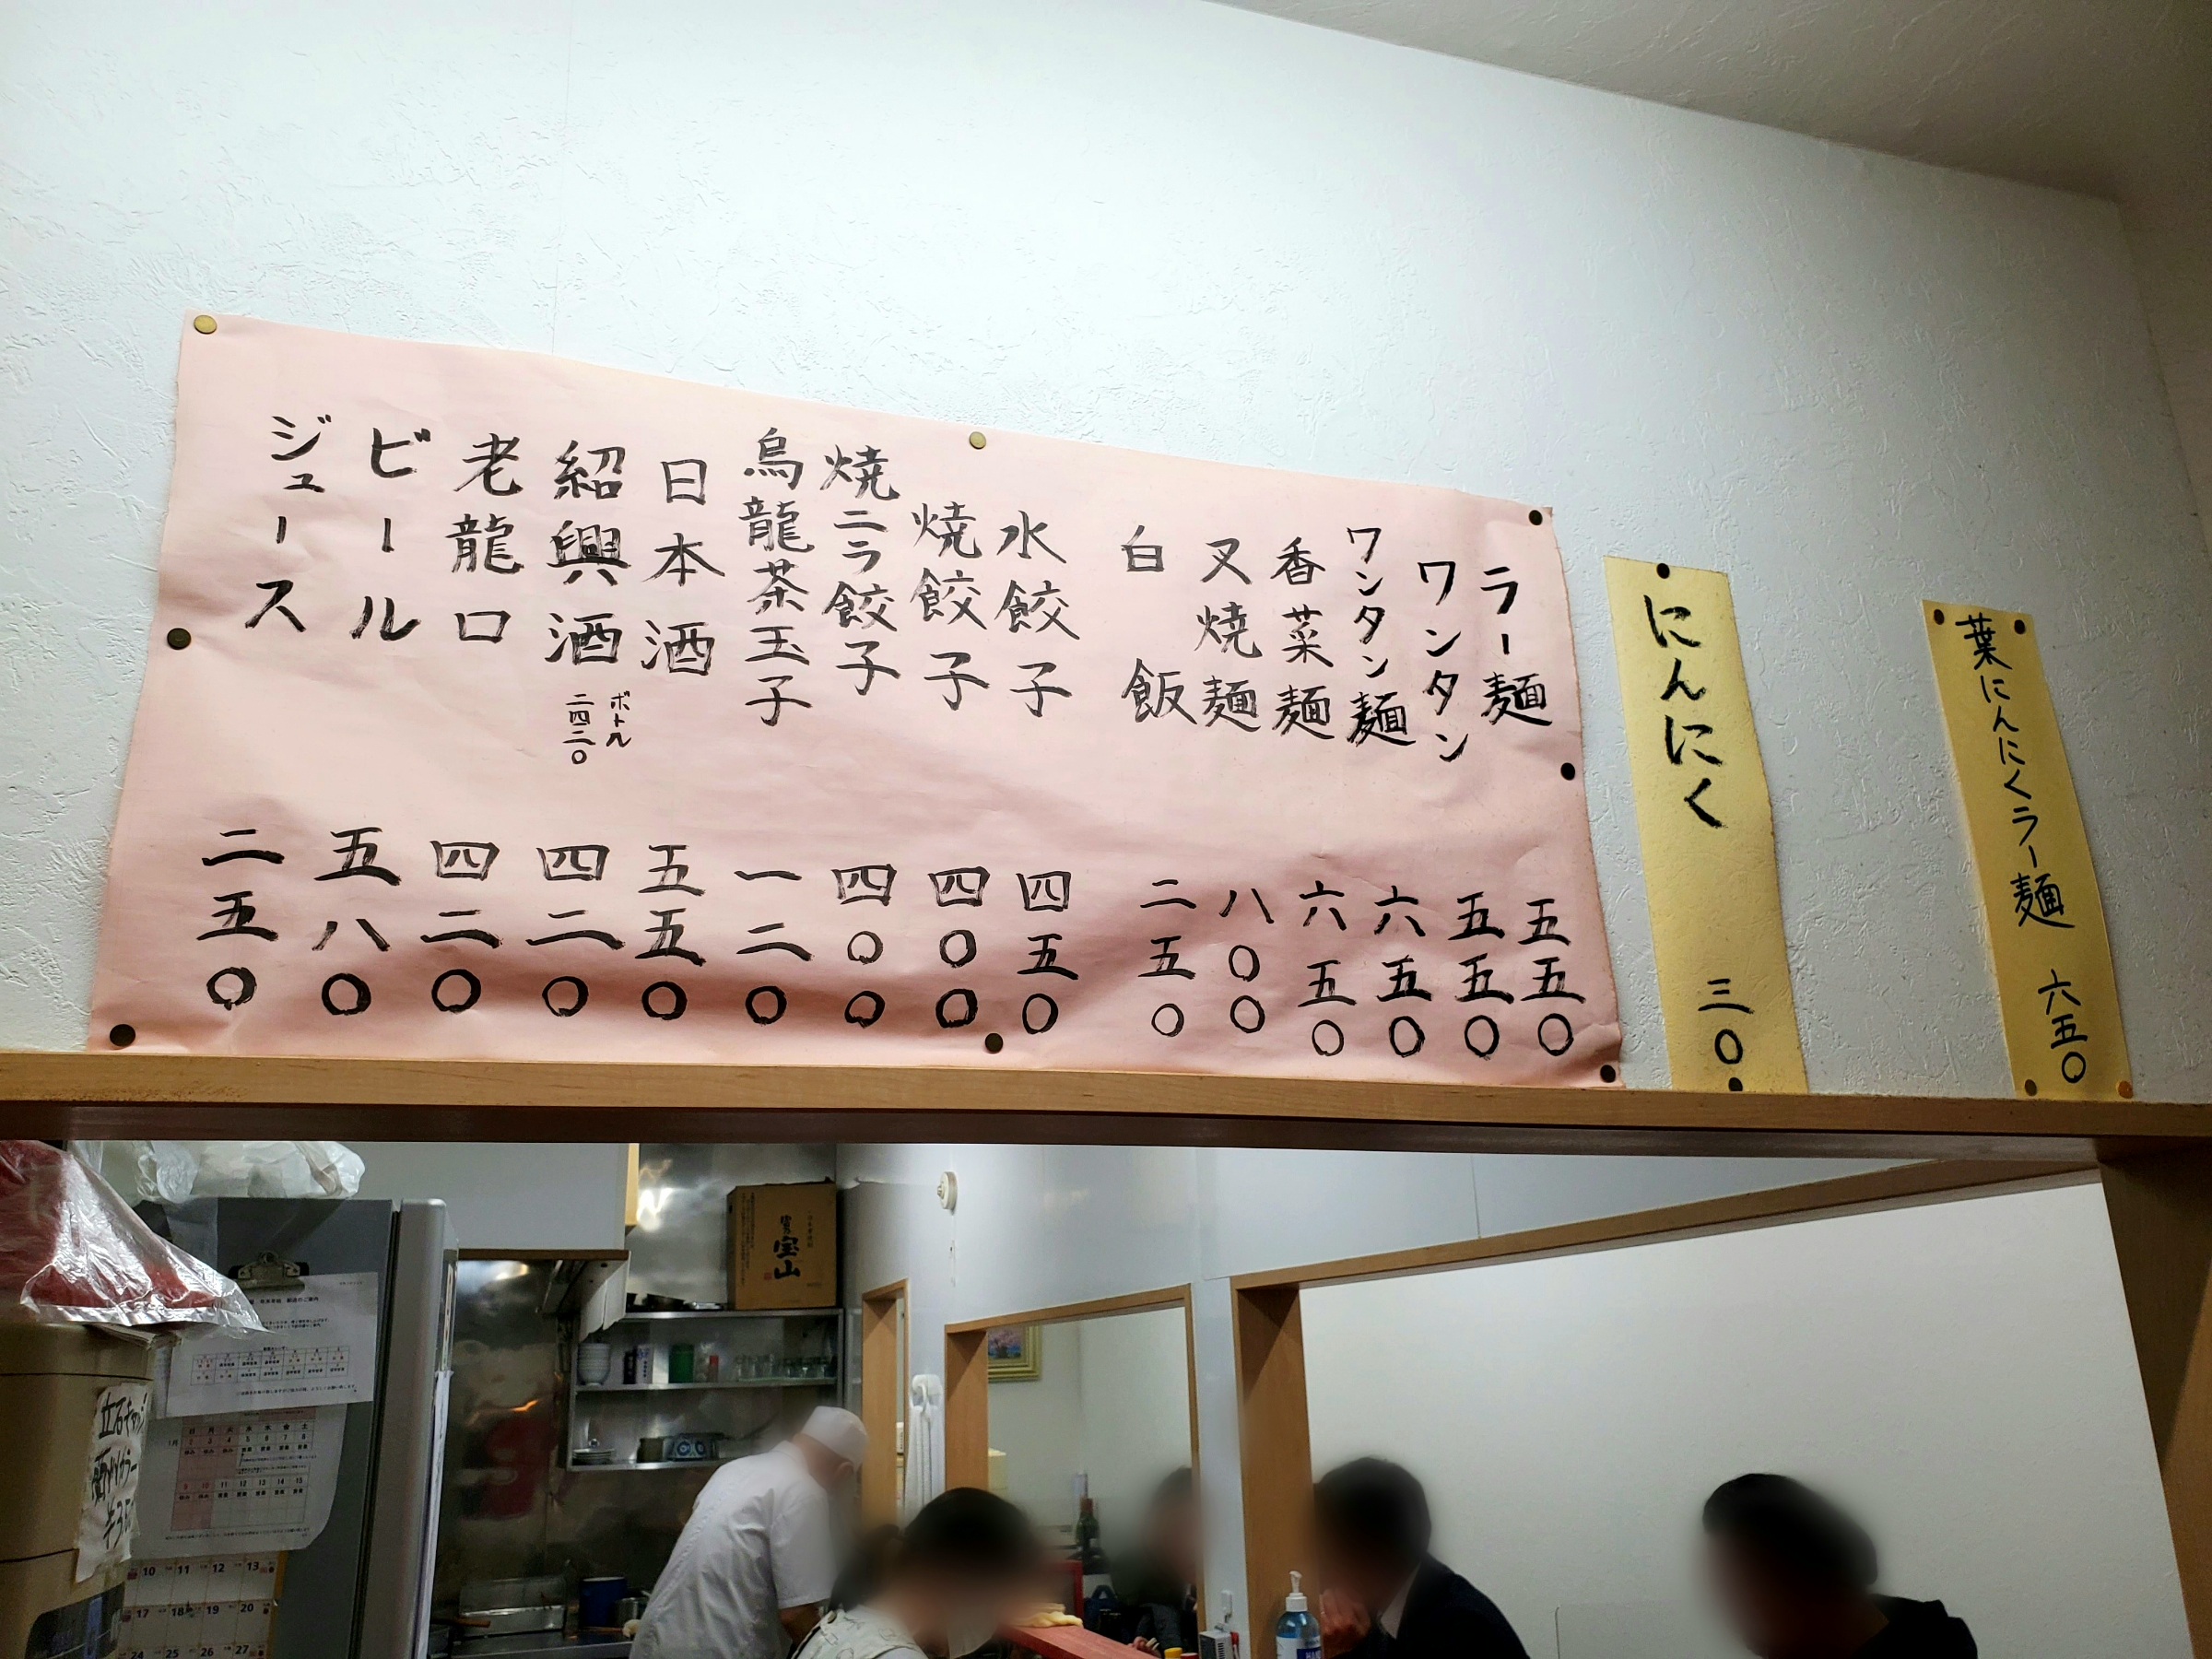 葉にんにくラー麺 六五〇
にんにく 三〇
ラー麺 五五〇
ワンタン 五五〇
ワンタン麺 六五〇
香菜麺 六五〇
叉焼麺 八〇〇
白飯 二五〇
水餃子 四五〇
焼餃子 四〇〇
焼ニラ餃子 四〇〇
烏龍茶玉子 一二〇
日本酒 五五〇
紹興酒 四二〇
ボトル
二四二〇
老龍口 四二〇
ビール 五八〇
ジュース 二五〇
宝山
日 月 火 水 木 金 土
1月
9 10 11 12 13 14 15
10 11 12 13
17 18 19 20
24 25 26 27